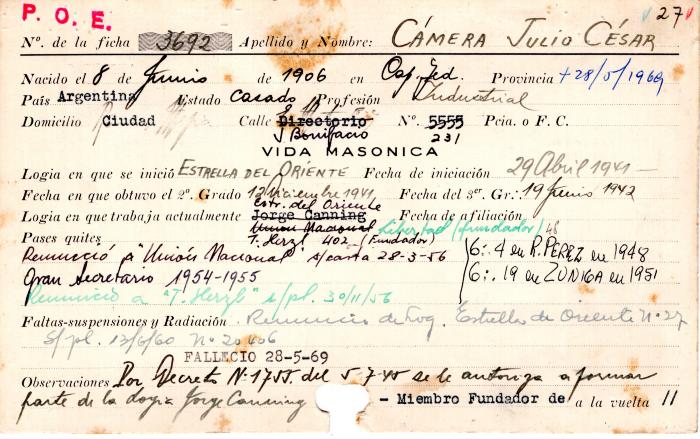 P. O. E.
27
Nº. de la ficha 3692 Apellido y Nombre: CÁMERA JULIO CÉSAR
Nacido el 8 de Junio de 1906 en Cap. Fed. Provincia +28/5/1969
País Argentina Estado Casado Profesión Industrial
Domicilio Ciudad Calle Directorio Nº. 5555 Pcia. o F. C.
J Bonifacio 231
VIDA MASONICA
Logia en que se inició ESTRELLA DEL ORIENTE Fecha de iniciación 29 Abril 1941-
Fecha en que obtuvo el 2º. Grado 12 Diciembre 1941 Fecha del 3er. Gr.: 19 Junio 1942
Estr. del Oriente
Logia en que trabaja actualmente Jorge Canning Fecha de afiliación
Unión Nacional Libertad (fundador) 48
Pases quites T. Herzl 402 (Fundador)
Renunció a "Unión Nacional" s/carta 28-3-56 G∴ 4 en R. PÉREZ en 1948
Gran Secretario 1954-1955 G∴ 19 en ZÚÑIGA en 1951
Renunció a "T. Herzl" s/pl. 30/11/56
Faltas-suspensiones y Radiación Renuncio de Log. Estrella de Oriente Nº 27
S/pl. 13/6/60 Nº 20406
FALLECIO 28-5-69
Observaciones Por Decreto Nº 1755 del 5-7-45 se le autoriza a formar
parte de la logia Jorge Canning - Miembro Fundador de a la vuelta 11